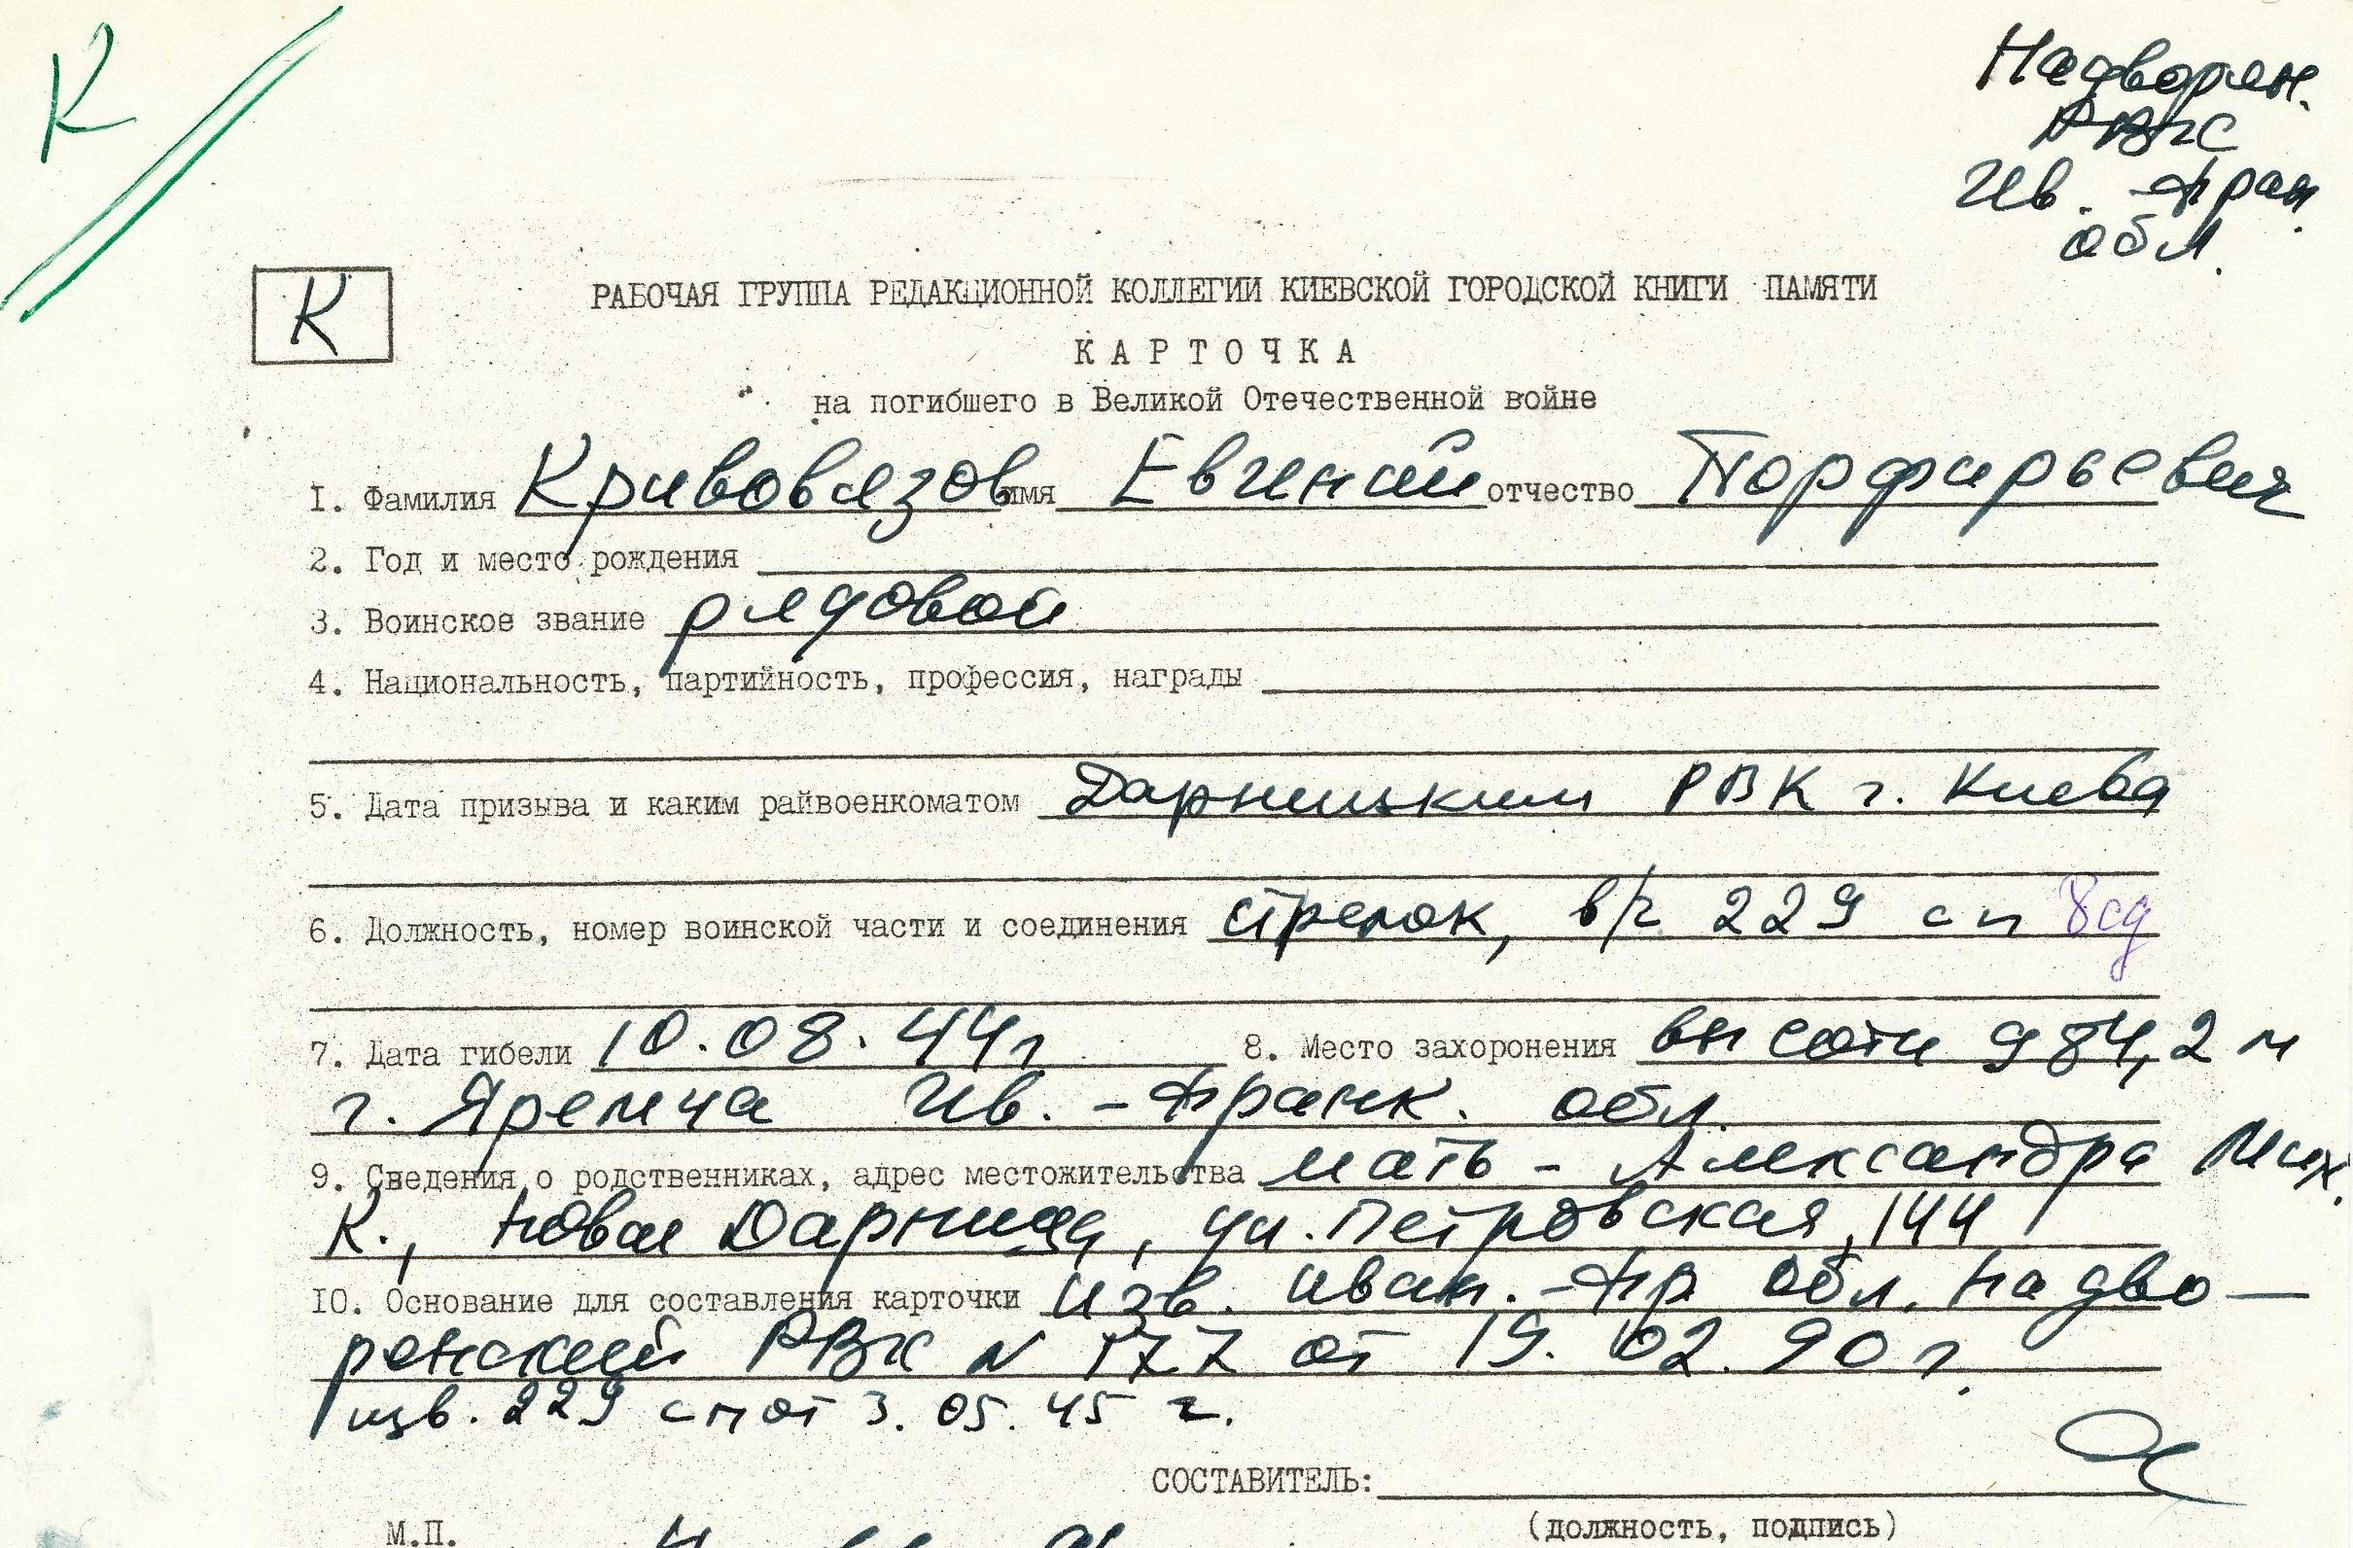 К
Надворян.
РВК
Ив.-Фран.
обл.
К
РАБОЧАЯ ГРУППА РЕДАКЦИОННОЙ КОЛЛЕГИИ КИЕВСКОЙ ГОРОДСКОЙ КНИГИ ПАМЯТИ
КАРТОЧКА
на погибшего в Великой Отечественной войне
1. Фамилия Кривовязов имя Евгений отчество Порфирьевич
2. Год и место рождения
3. Воинское звание рядовой
4. Национальность, партийность, профессия, награды
5. Дата призыва и каким райвоенкоматом Дарницким РВК г. Киева
6. Должность, номер воинской части и соединения стрелок, в/ч 229 сп 8сд
7. Дата гибели 10.08.44г 8. Место захоронения высоты 984,2 м
г. Яремча Ив.-Франк. обл.
9. Сведения о родственниках, адрес местожительства мать - Александра Мих.
К., Новая Дарница, ул. Петровская, 144
10. Основание для составления карточки изв. Иван.-Фр обл. Надво-
рянский РВК N 177 от 19.02.90г.
изв. 229 сп от 3.05.45 г.
СОСТАВИТЕЛЬ:
(должность, подпись)
М.П.